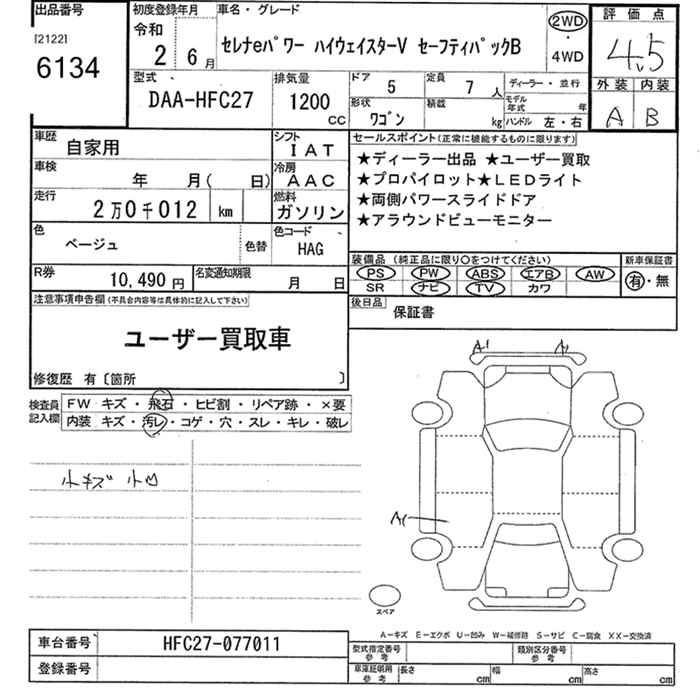 出品番号
[2122]
6134
初度登録年月
令和
2 6月
車名・グレード
セレナeパワー ハイウェイスターV セーフティパックB
2WD
・
4WD
評価点
4.5
外装 内装
A B
型式
DAA-HFC27
排気量
1200
CC
ドア 5
定員 7 人
ディーラー・並行
形状
ワゴン
積載
kg
モデル
年式 年
ハンドル 左・右
車歴
自家用
シフト
IAT
車検
年 月( 日)
冷房
AAC
走行
2万0千012 km
燃料
ガソリン
色
ベージュ
色替
色コード
HAG
R券
10,490円
名変通知期限
月 日
セールスポイント(正常に機能するものに限ります)
★ディーラー出品 ★ユーザー買取
★プロパイロット★LEDライト
★両側パワースライドドア
★アラウンドビューモニター
装備品 (純正品に限り○をつけてください)
新車保証書
PS PW ABS エアB AW
SR ナビ TV カワ
有・無
後日品
保証書
注意事項申告欄(不具合内容等は具体的に記入して下さい)
ユーザー買取車
修復歴 有〔箇所 〕
検査員
記入欄
FW キズ・飛石・ヒビ割・リペア跡・×要
内装 キズ・汚レ・コゲ・穴・スレ・キレ・破レ
小キズ 小凹
A1 A1
A1
スペア
A-キズ E-エクボ U-凹み W-補修跡 S-サビ C-腐食 XX-交換済
車台番号
HFC27-077011
登録番号
型式指定番号
参考
類別区分番号
参考
車庫証明用
参考
長さ cm
幅 cm
高さ cm